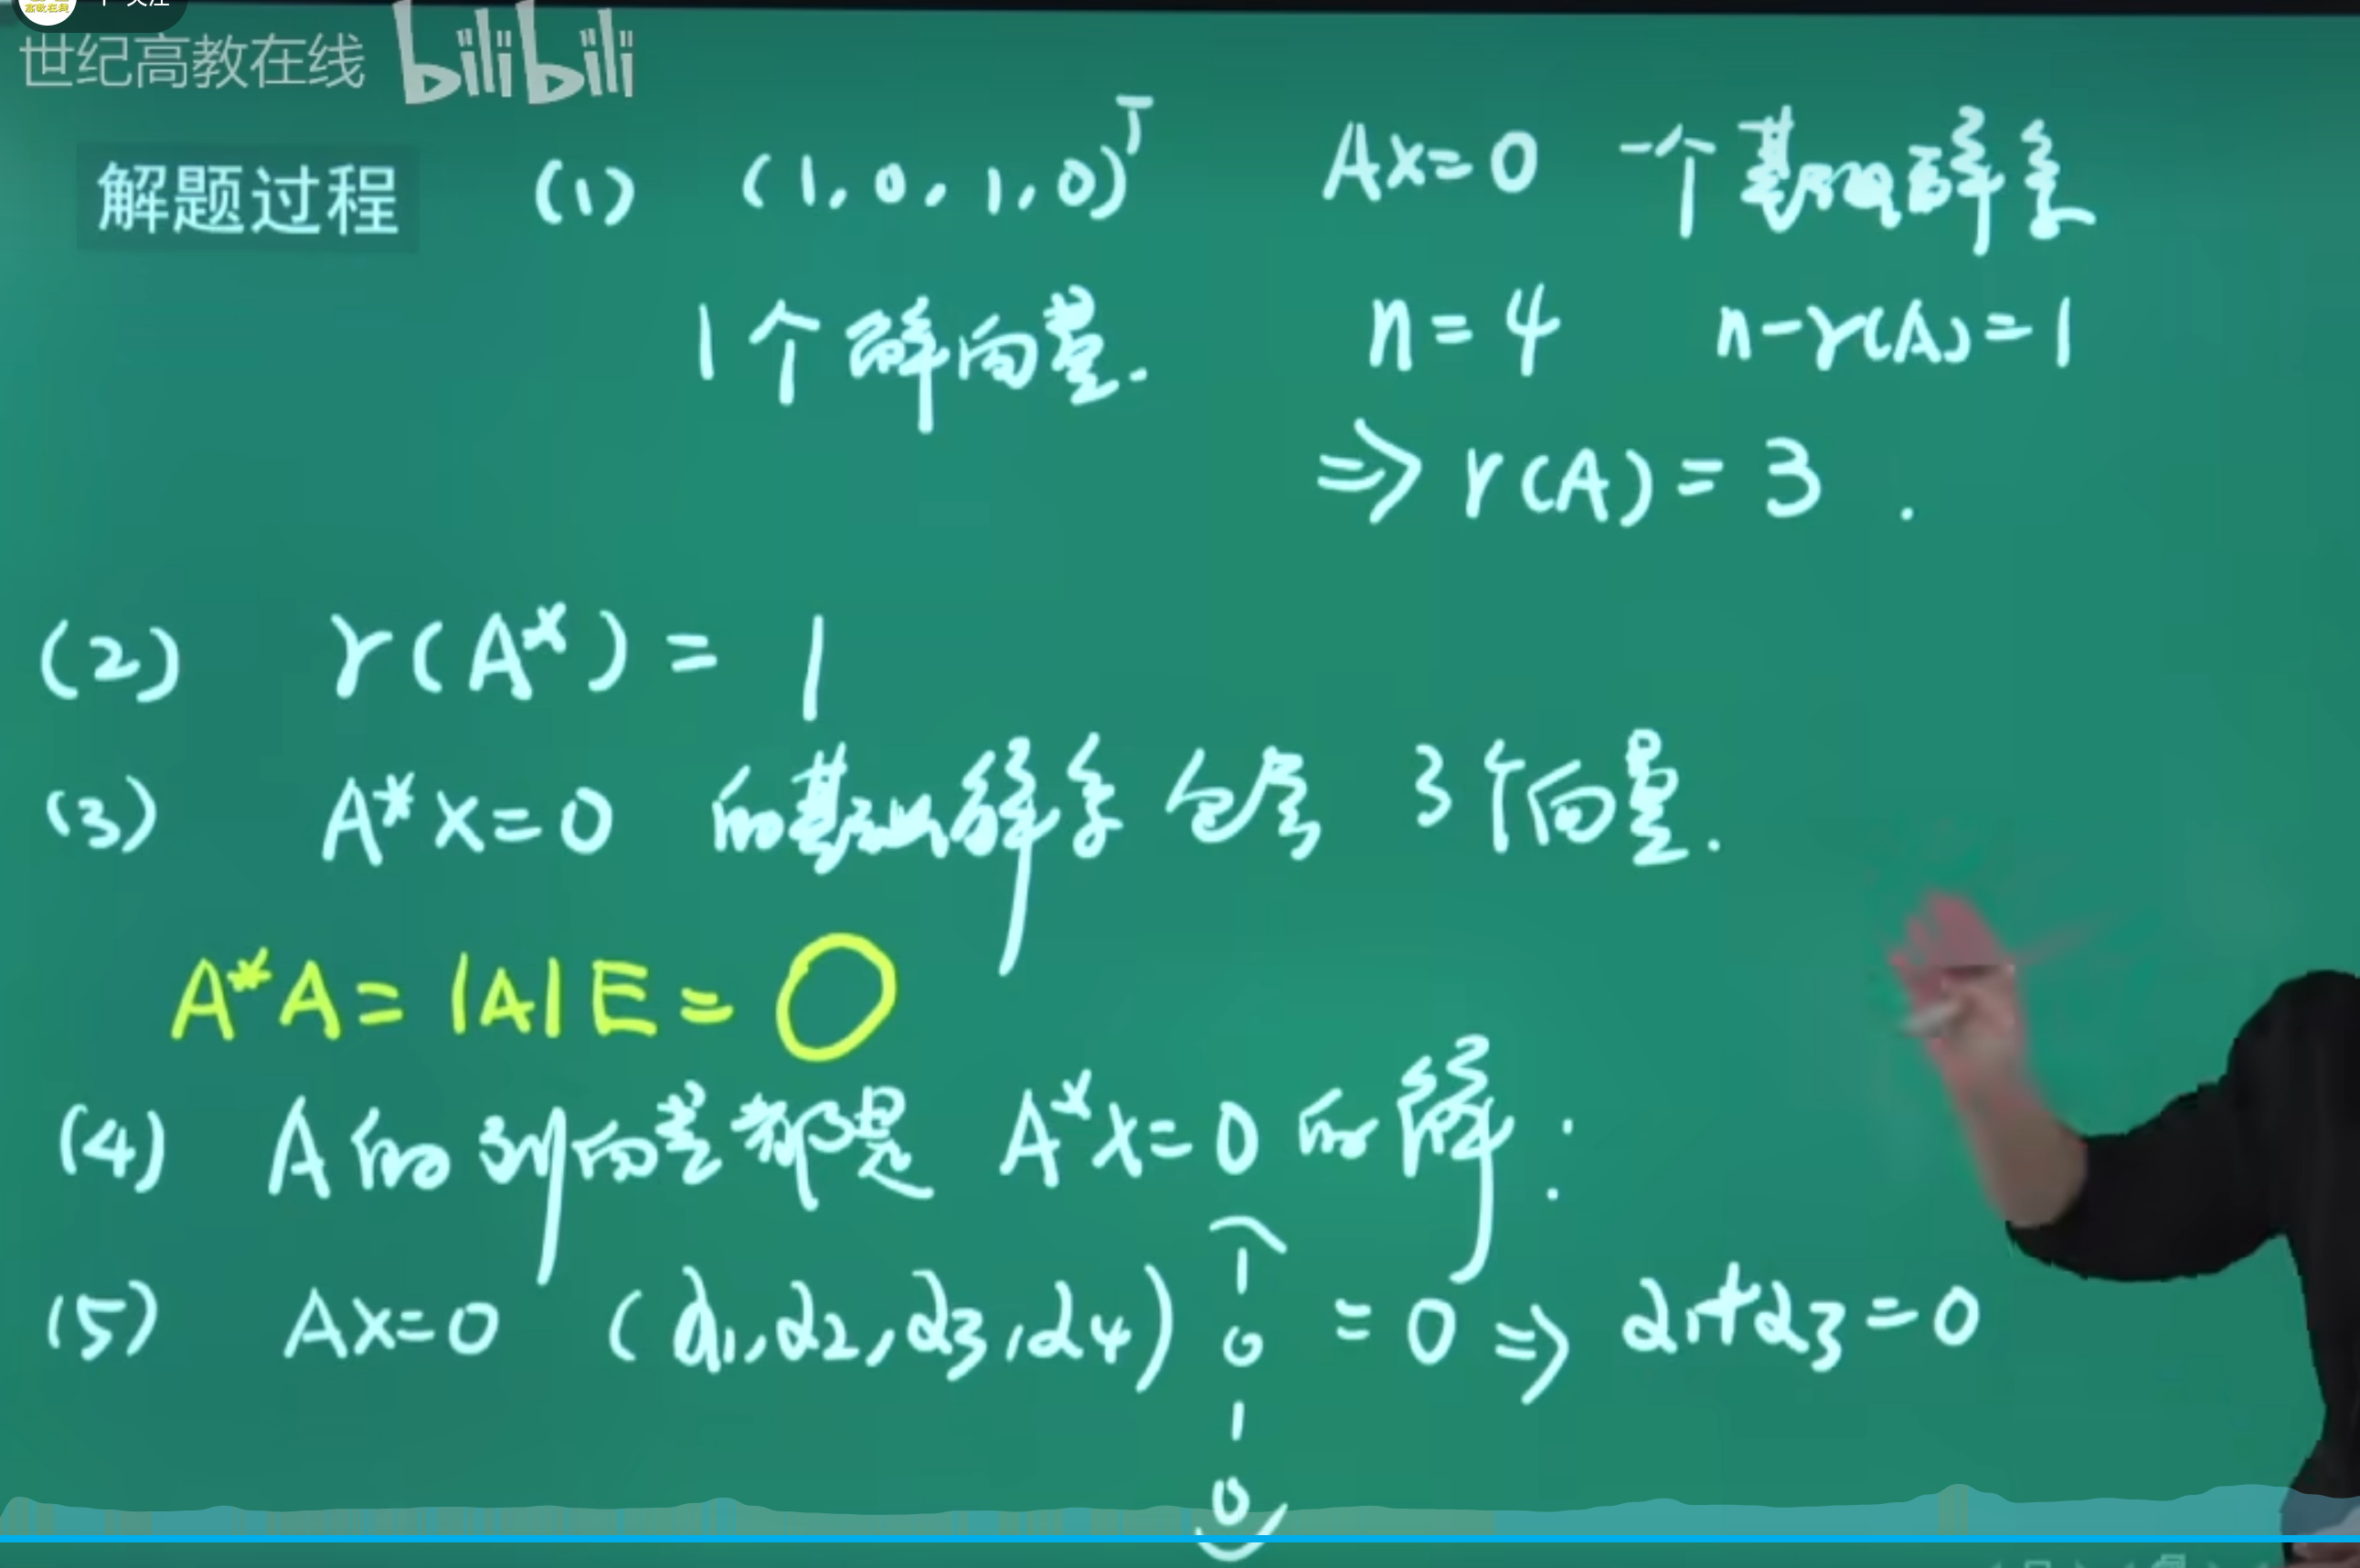 世纪高教在线 bilibili
解题过程 (1) (1, 0, 1, 0)ᵀ Ax=0 一个基础解系
1个解向量. n=4 n-r(A)=1
⇒ r(A)=3.
(2) r(A*)=1
(3) A*x=0 的基础解系包含 3个向量.
A*A=|A|E=O
(4) A的列向量都是 A*x=0 的解:
(5) Ax=0 (α1,α2,α3,α4) (1 0 1 0) =0 ⇒ α1+α3=0